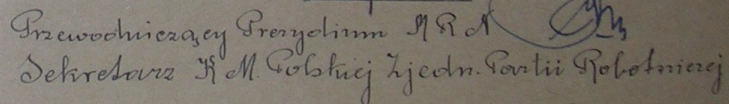 Przewodniczący Prezydium M R N
Sekretarz K M. Polskiej Zjedn. Partii Robotniczej